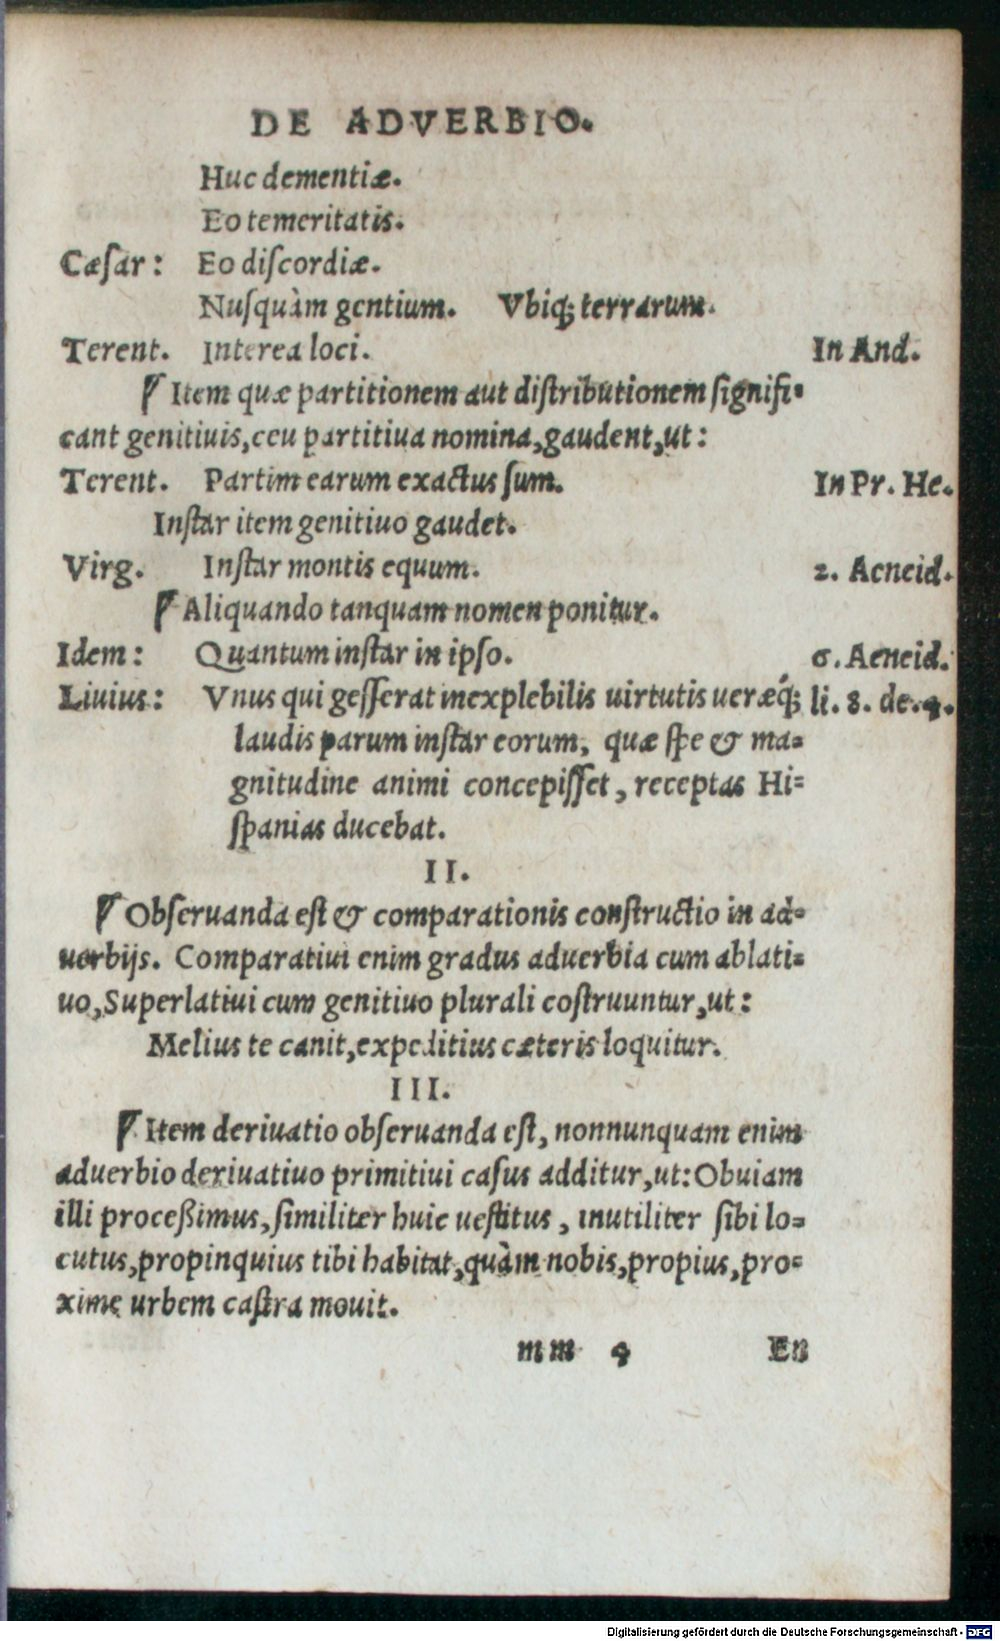 DE ADVERBIO.
Huc dementiæ.
Eo temeritatis.
Cæsar: Eo discordiæ.
Nusquàm gentium. Vbiq; terrarum.
Terent. Interea loci. In And.
Item quæ partitionem aut distributionem signifi-
cant genitiuis, ceu partitiua nomina, gaudent, ut:
Terent. Partim earum exactus sum. In Pr. He.
Instar item genitiuo gaudet.
Virg. Instar montis equum. 2. Aeneid.
Aliquando tanquam nomen ponitur.
Idem: Quantum instar in ipso. 6. Aeneid.
Liuius: Vnus qui gesserat inexplebilis uirtutis ueræq́; li. 8. de. 4.
laudis parum instar eorum, quæ spe & ma-
gnitudine animi concepisset, receptas Hi-
spanias ducebat.
II.
Obseruanda est & comparationis constructio in ad-
uerbijs. Comparatiui enim gradus aduerbia cum ablati-
uo, Superlatiui cum genitiuo plurali costruuntur, ut:
Melius te canit, expeditius cæteris loquitur.
III.
Item deriuatio obseruanda est, nonnunquam enim
aduerbio deriuatiuo primitiui casus additur, ut: Obuiam
illi proceßimus, similiter huic uestitus, inutiliter sibi lo-
cutus, propinquius tibi habitat, quàm nobis, propius, pro-
xime urbem castra mouit.
mm 4 En
Digitalisierung gefördert durch die Deutsche Forschungsgemeinschaft - DFG